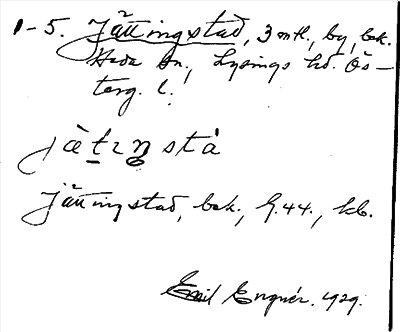 1-5. Jättingstad, 3 mtl., by, bek.
Heda sn., Lysings hd. Ös-
terg. l.
jätıŋstà
Jättingstad, bek., G.44., kb.
Emil Engnér. 1929.